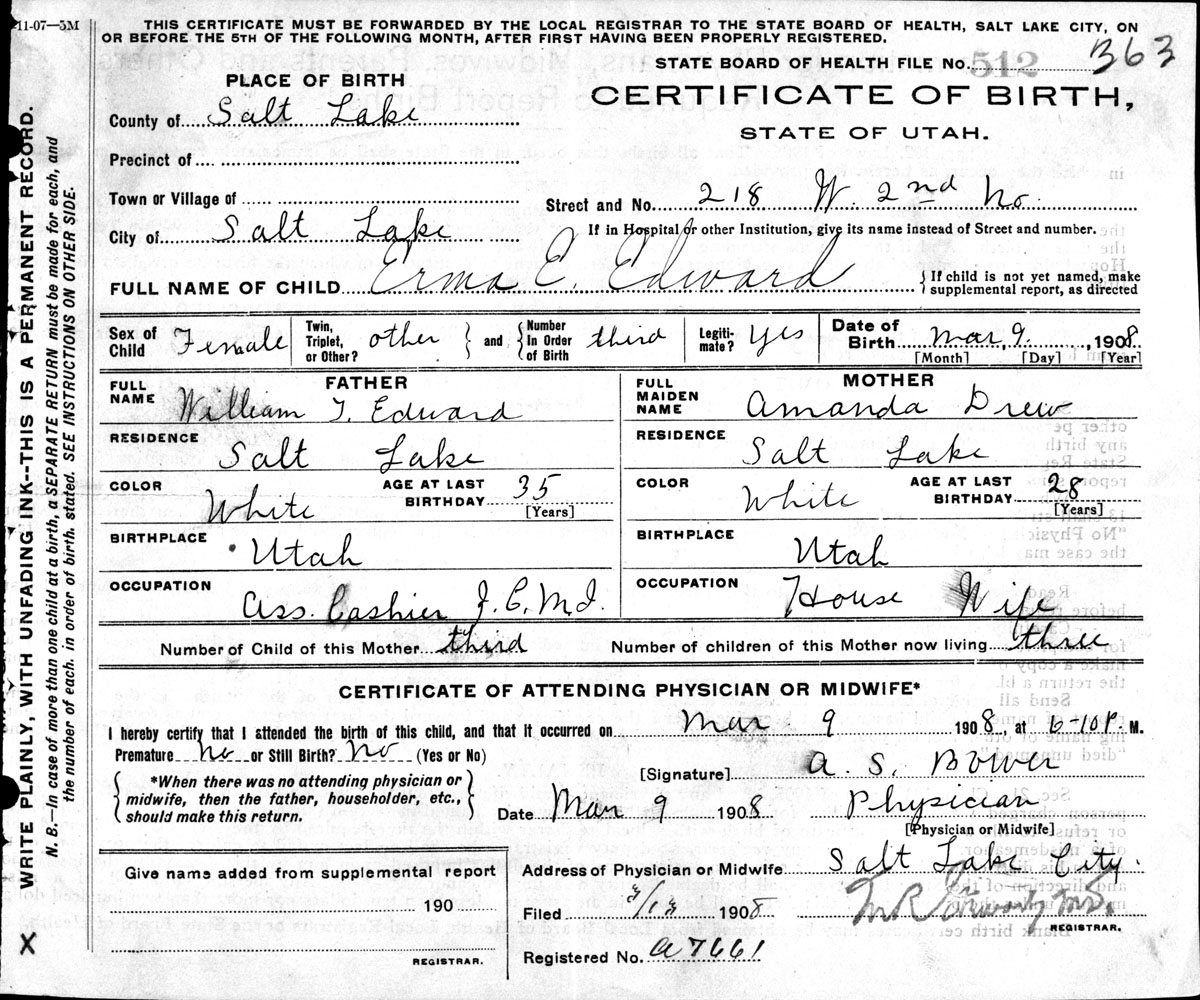 11-07—5M
THIS CERTIFICATE MUST BE FORWARDED BY THE LOCAL REGISTRAR TO THE STATE BOARD OF HEALTH, SALT LAKE CITY, ON
OR BEFORE THE 5TH OF THE FOLLOWING MONTH, AFTER FIRST HAVING BEEN PROPERLY REGISTERED.
STATE BOARD OF HEALTH FILE No. 512 363
PLACE OF BIRTH
CERTIFICATE OF BIRTH,
STATE OF UTAH.
County of Salt Lake
Precinct of
Town or Village of
Street and No. 218 W. 2nd No.
City of Salt Lake
If in Hospital or other Institution, give its name instead of Street and number.
FULL NAME OF CHILD Erma E. Edward
{If child is not yet named, make
supplemental report, as directed
Sex of Child Female
Twin, Triplet, or Other? other
and
Number In Order of Birth third
Legitimate? Yes
Date of Birth Mar. 9. 1908
[Month] [Day] [Year]
FATHER
FULL NAME William T. Edward
RESIDENCE Salt Lake
COLOR White
AGE AT LAST BIRTHDAY 35
[Years]
BIRTHPLACE Utah
OCCUPATION Ass. Cashier Z.C.M.I.
MOTHER
FULL MAIDEN NAME Amanda Drew
RESIDENCE Salt Lake
COLOR White
AGE AT LAST BIRTHDAY 28
[Years]
BIRTHPLACE Utah
OCCUPATION House Wife
Number of Child of this Mother third
Number of children of this Mother now living three
CERTIFICATE OF ATTENDING PHYSICIAN OR MIDWIFE*
I hereby certify that I attended the birth of this child, and that it occurred on Mar 9 1908, at 6-10 P. M.
Premature No or Still Birth? No (Yes or No)
*When there was no attending physician or
midwife, then the father, householder, etc.,
should make this return.
[Signature] A. S. Bower
Date Mar 9 1908
Physician
[Physician or Midwife]
Give name added from supplemental report
190
REGISTRAR.
Address of Physician or Midwife Salt Lake City.
Filed 1908
REGISTRAR.
Registered No. a7661
WRITE PLAINLY, WITH UNFADING INK--THIS IS A PERMANENT RECORD.
N. B.—In case of more than one child at a birth, a SEPARATE RETURN must be made for each, and
the number of each, in order of birth, stated. SEE INSTRUCTIONS ON OTHER SIDE.
X